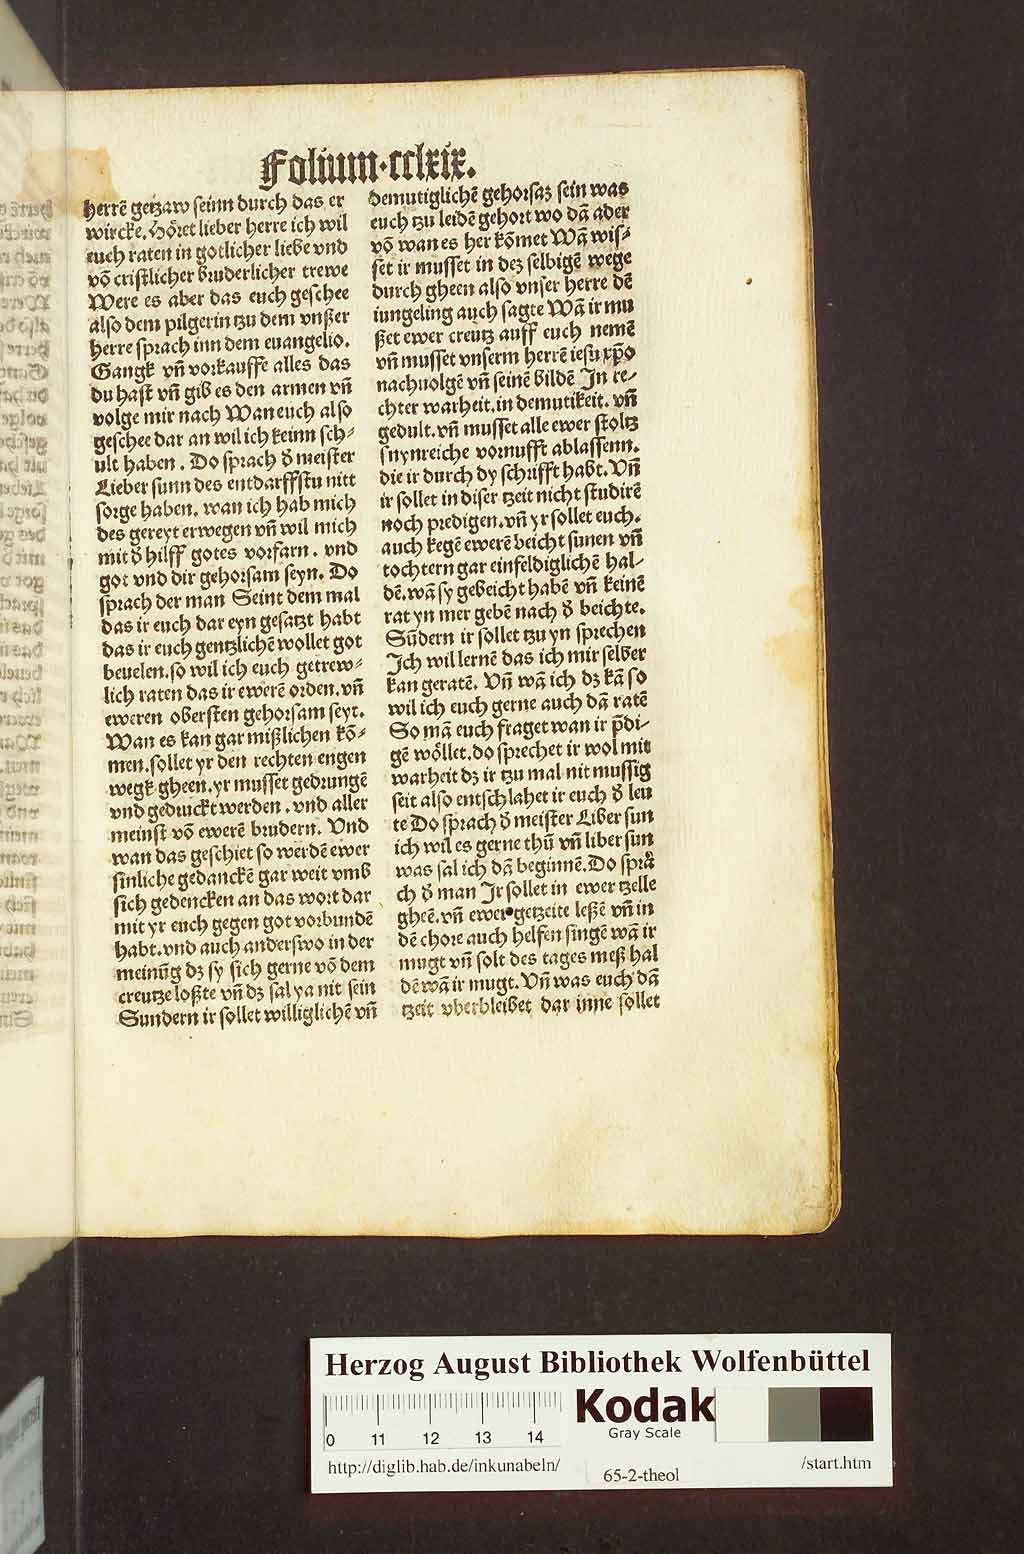 Folium·cclxix.
herrē getzaw seinn durch das er
wircke. Höret lieber herre ich wil
euch raten in gotlicher liebe vnd
vō cristlicher bruderlicher trewe
Were es aber das euch geschee
also dem pilgerin tzu dem vnßer
herre sprach inn dem euangelio.
Gangk vn̄ vorkauffe alles das
du hast vn̄ gib es den armen vn̄
volge mir nach Wan euch also
geschee dar an wil ich keinn sch⸗
ult haben. Do sprach d̕ meister
Lieber sunn des entdarffstu nitt
sorge haben. wan ich hab mich
des gereyt erwegen vn̄ wil mich
mit d̕ hilff gotes vorfarn. vnd
got vnd dir gehorsam seyn. Do
sprach der man Seint dem mal
das ir euch dar eyn gesatzt habt
das ir euch gentzlichē wollet got
beuelen. so wil ich euch getrew⸗
lich raten das ir ewerē orden. vn̄
eweren obersten gehorsam seyt.
Wan es kan gar mißlichen kō⸗
men. sollet yr den rechten engen
wegk gheen. yr musset gedrungē
vnd gedruckt werden. vnd aller
meinst vō ewerē brudern. Vnd
wan das geschiet so werdē ewer
sinliche gedanckē gar weit vmb
sich gedencken an das wort dar
mit yr euch gegen got vorbundē
habt. vnd auch anderswo in der
meinūg dz sy sich gerne vō dem
creutze loßte vn̄ dz sal ya nit sein
Sundern ir sollet williglichē vn̄
demutiglichē gehorsaz sein was
euch tzu leidē gehort wo dā ader
vō wan es her kōmet Wā wis⸗
set ir musset in dez selbigē wege
durch gheen also vnser herre dē
iungeling auch sagte Wā ir mu
ßet ewer creutz auff euch nemē
vn̄ musset vnserm herrē iesu xp̄o
nachuolgē vn̄ seinē bildē In re⸗
chter warheit. in demutikeit. vn̄
gedult. vn̄ musset alle ewer stoltz
snynreiche vornufft ablassenn.
die ir durch dy schrifft habt. Vn̄
ir sollet in diser tzeit nicht studirē
noch predigen. vn̄ yr sollet euch.
auch kegē ewerē beicht sunen vn̄
tochtern gar einfeldiglichē hal⸗
dē. wā sy gebeicht habē vn̄ keinē
rat yn mer gebē nach d̕ beichte.
Sūdern ir sollet tzu yn sprechen
Ich wil lernē das ich mir selber
kan geratē. Vn̄ wā ich dz kā so
wil ich euch gerne auch dā ratē
So mā euch fraget wan ir p̄di⸗
gē wöllet. do sprechet ir wol mit
warheit dz ir tzu mal nit mussig
seit also entschlahet ir euch d̕ leu
te Do sprach d̕ meister Liber sun
ich wil es gerne thū vn̄ liber sun
was sal ich dā beginnē. Do sprā
ch d̕ man Ir sollet in ewer tzelle
gheē. vn̄ ewer getzeite leßē vn̄ in
dē chore auch helfen singē wā ir
mugt vn̄ solt des tages meß hal
dē wā ir mugt. Vn̄ was euch dā
tzeit vberbleibet dar inne sollet
Herzog August Bibliothek Wolfenbüttel
0 11 12 13 14
Kodak
Gray Scale
http://diglib.hab.de/inkunabeln/
65-2-theol
/start.htm